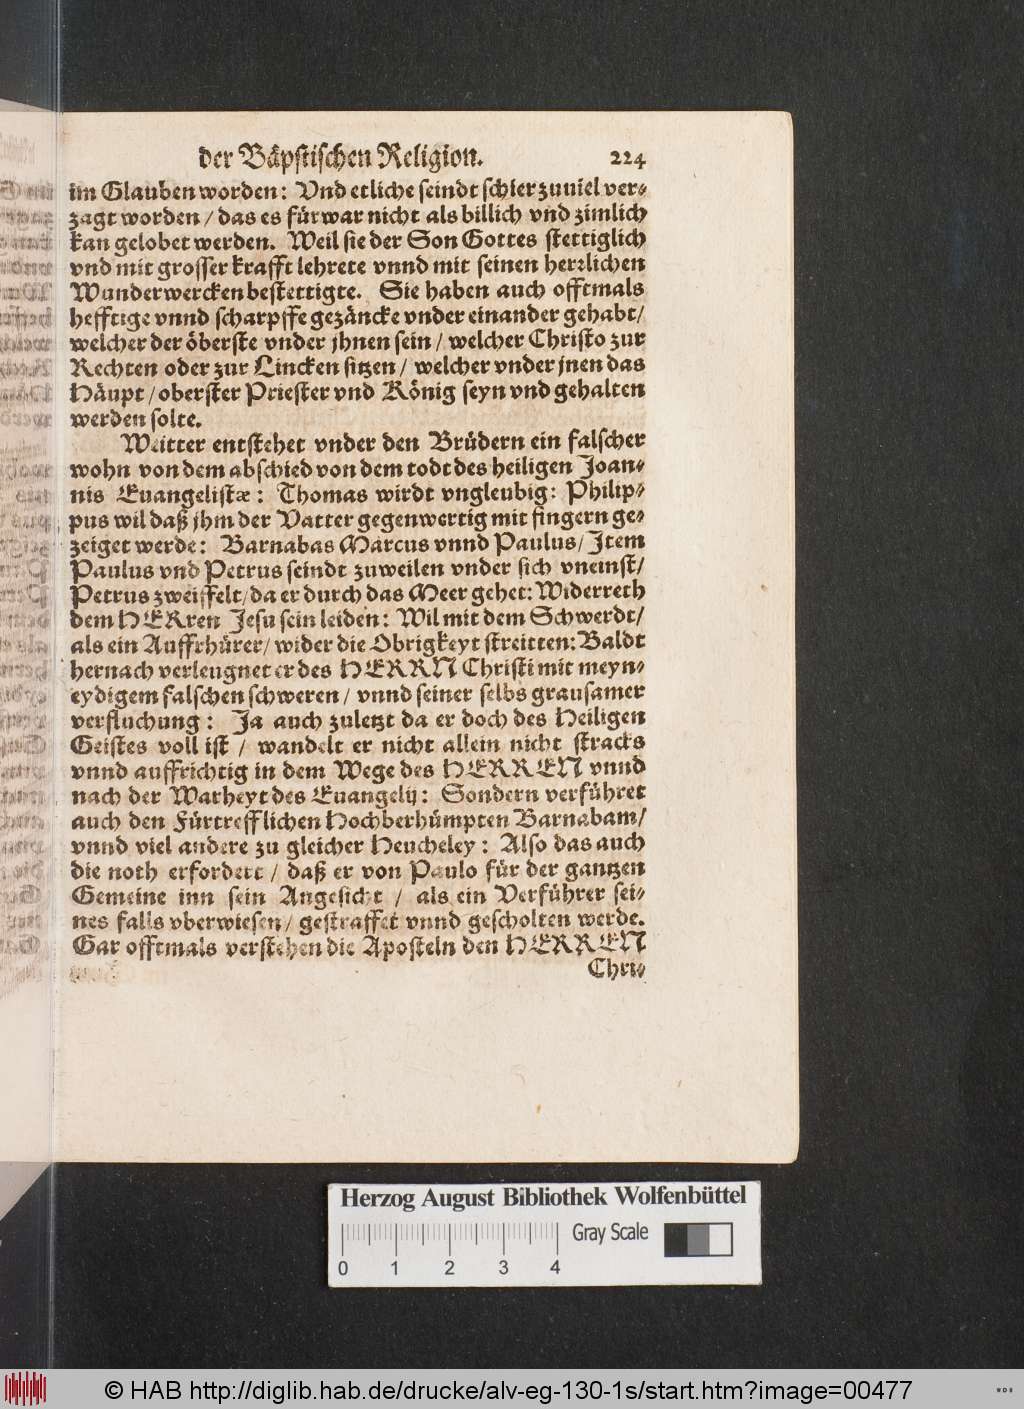 der Bäpstischen Religion. 224
im Glauben worden: Vnd etliche seindt schier zuuiel ver-
zagt worden / das es fürwar nicht als billich vnd zimlich
kan gelobet werden. Weil sie der Son Gottes stettiglich
vnd mit grosser krafft lehrete vnnd mit seinen herrlichen
Wunderwercken bestettigte. Sie haben auch offtmals
hefftige vnnd scharpffe gezäncke vnder einander gehabt/
welcher der öberste vnder jhnen sein / welcher Christo zur
Rechten oder zur Lincken sitzen / welcher vnder jnen das
Häupt / oberster Priester vnd König seyn vnd gehalten
werden solte.
Weitter entstehet vnder den Brüdern ein falscher
wohn von dem abschied von dem todt des heiligen Joan-
nis Euangelistæ: Thomas wirdt vngleubig: Philip-
pus wil daß jhm der Vatter gegenwertig mit fingern ge-
zeiget werde: Barnabas Marcus vnnd Paulus/ Item
Paulus vnd Petrus seindt zuweilen vnder sich vneinst/
Petrus zweiffelt/ da er durch das Meer gehet: Widerreth
dem HERren Jesu sein leiden: Wil mit dem Schwerdt/
als ein Auffrhürer/ wider die Obrigkeyt streitten: Baldt
hernach verleugnet er des HERRN Christi mit meyn-
eydigem falschen schweren / vnnd seiner selbs grausamer
verfluchung: Ja auch zuletzt da er doch des Heiligen
Geistes voll ist / wandelt er nicht allein nicht stracks
vnnd auffrichtig in dem Wege des HERREN vnnd
nach der Warheyt des Euangelij: Sondern verführet
auch den Fürtrefflichen Hochberhümpten Barnabam/
vnnd viel andere zu gleicher Heucheley: Also das auch
die noth erfordert / daß er von Paulo für der gantzen
Gemeine inn sein Angesicht / als ein Verführer sei-
nes falls vberwiesen/ gestraffet vnnd gescholten werde.
Gar offtmals verstehen die Aposteln den HERREN
Chri-
Herzog August Bibliothek Wolfenbüttel
Gray Scale
0 1 2 3 4
© HAB http://diglib.hab.de/drucke/alv-eg-130-1s/start.htm?image=00477